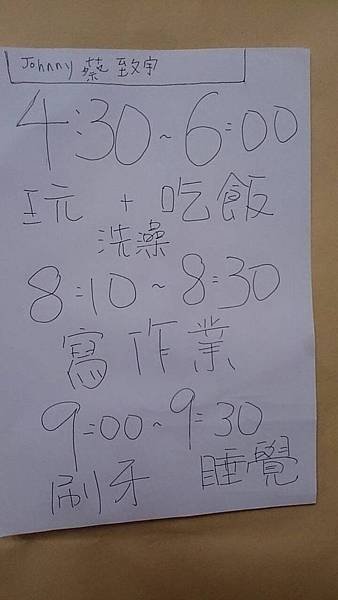 Johnny 蔡致宇
4:30~6:00
玩 + 吃飯
洗澡
8:10~8:30
寫作業
9:00~9:30
刷牙 睡覺